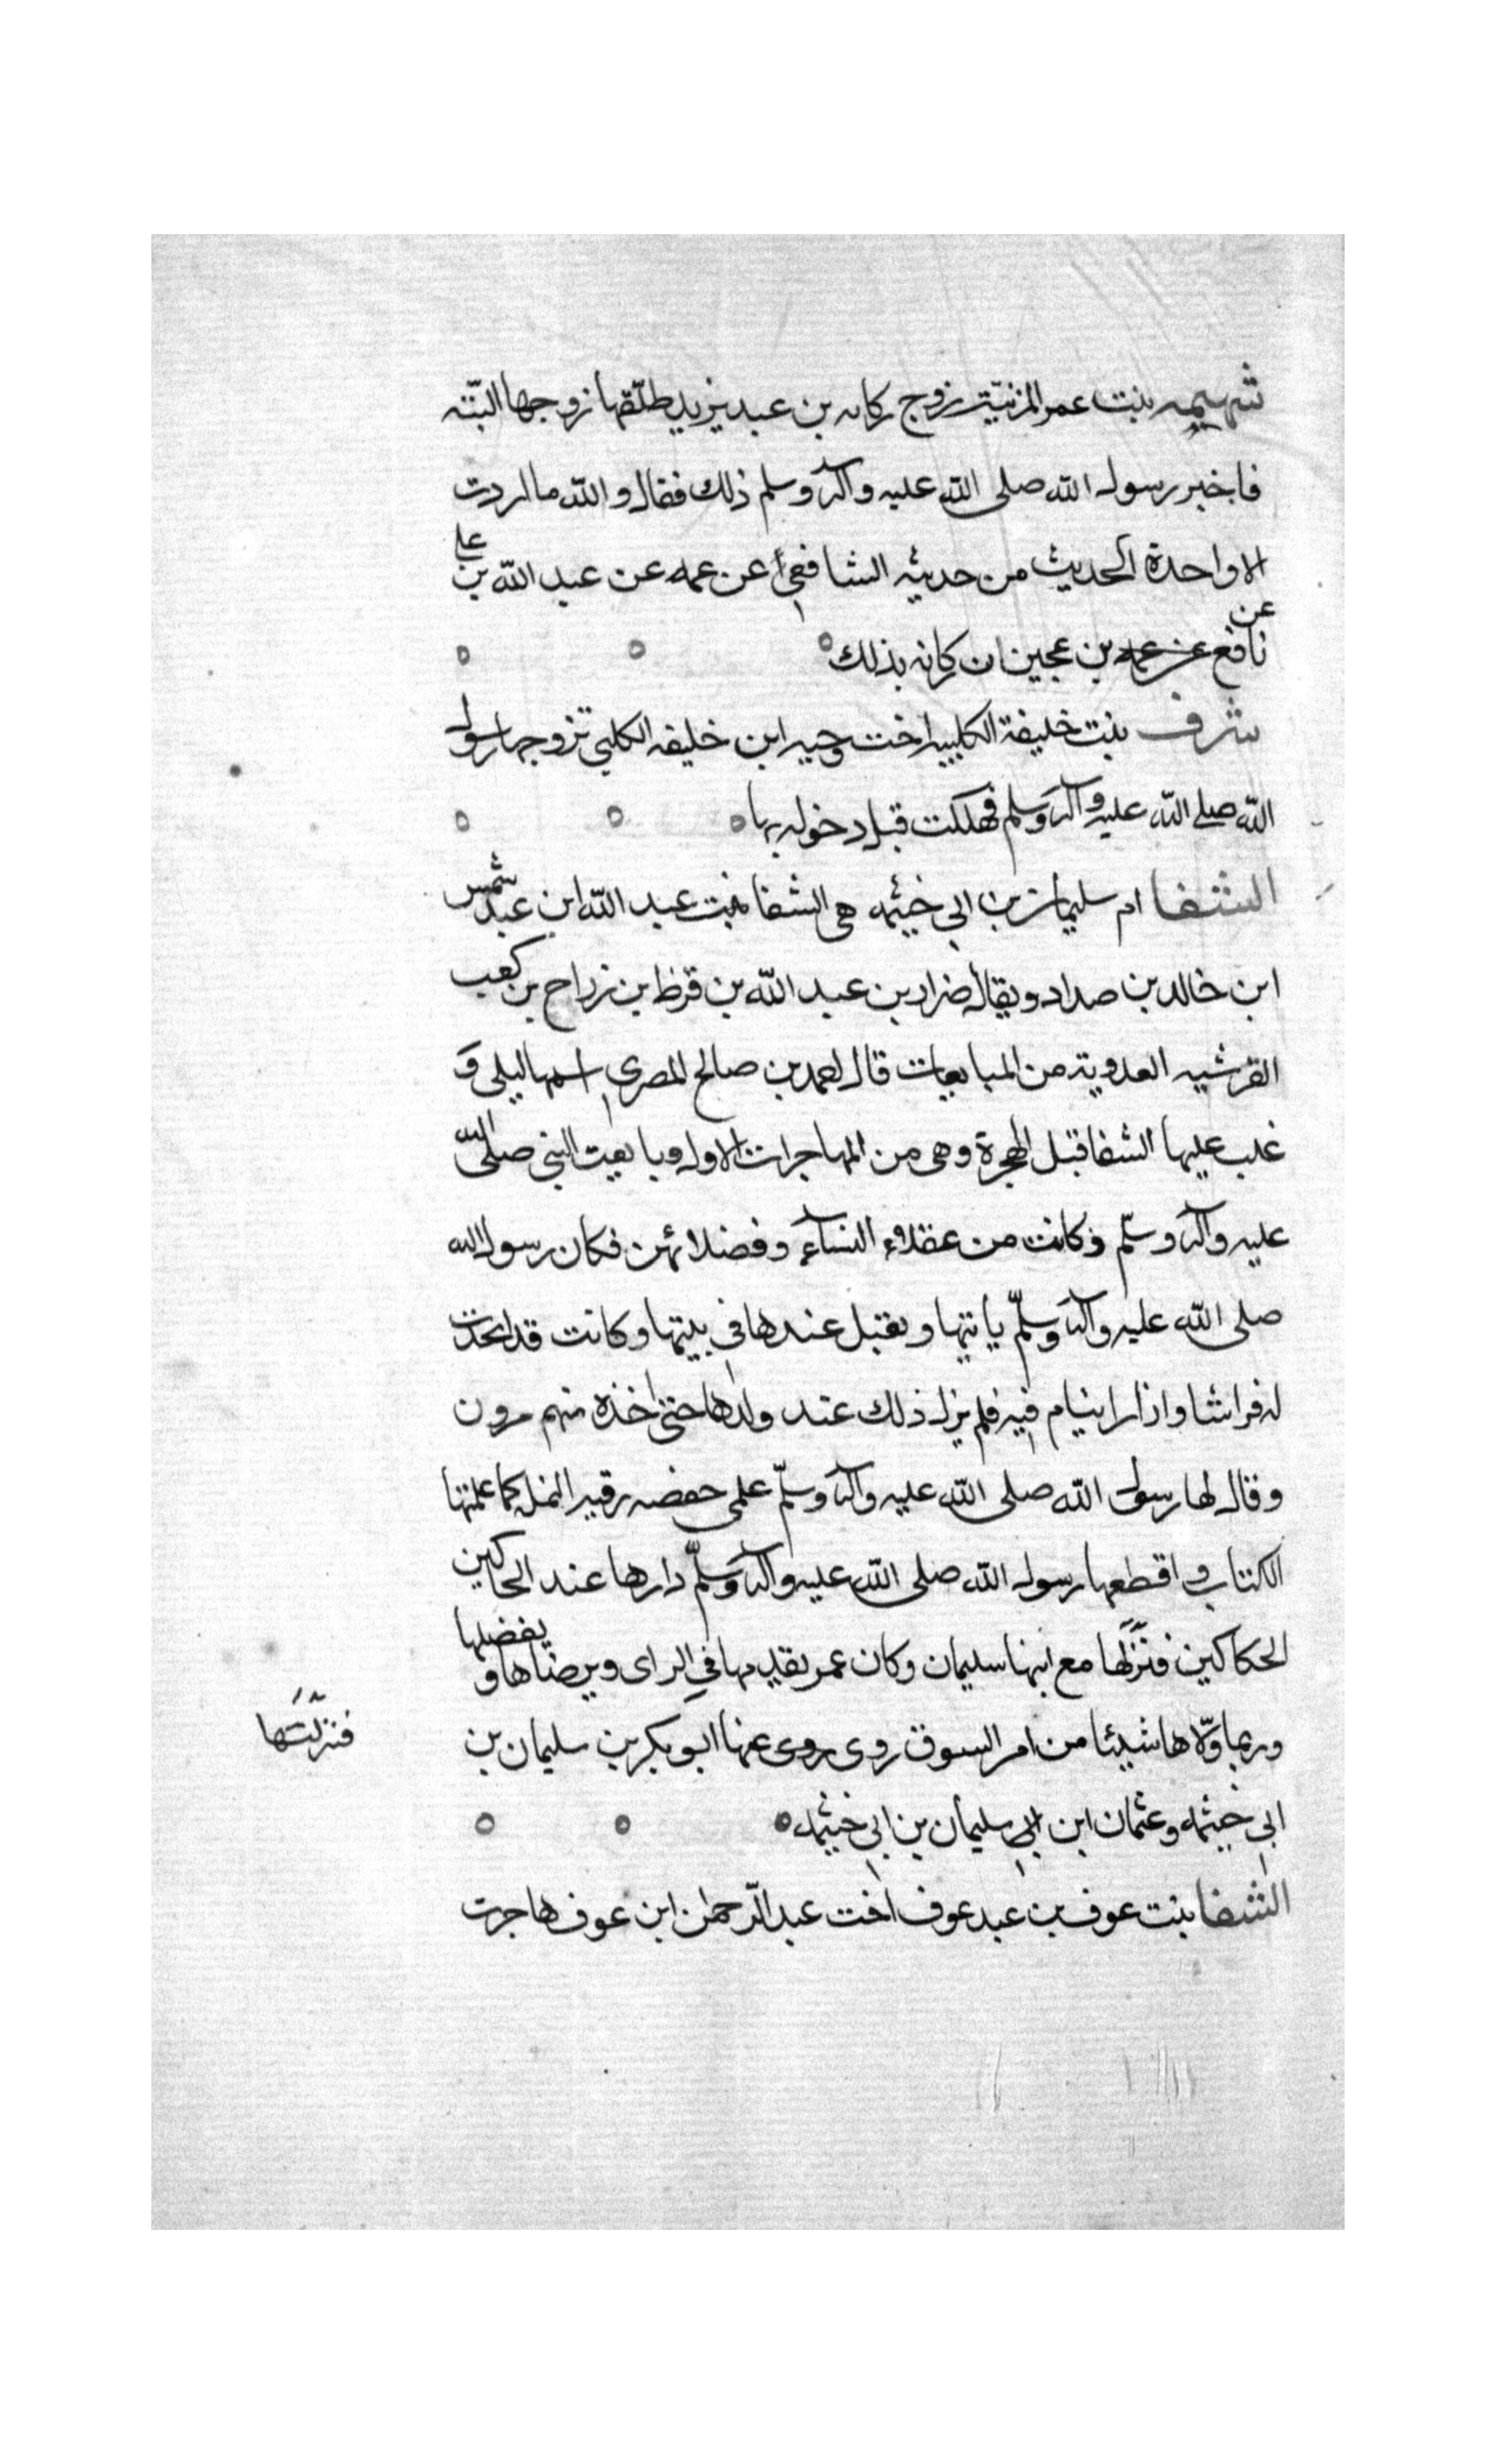 شهيمه بنت عمر المزنية زوج ركانه بن عبد يزيد طلّقها زوجها البتّه
فاخبر رسول الله صلى الله عليه وآله وسلم ذلك فقال والله ما اردت
الا واحدة الحديث من حديثه الشافعي عن عمه عن عبد الله بن علي
نافع عن عمه بن عجين ان ركانه بذلك
عن
شرف بنت خليفة الكلبيه اخت دحيه ابن خليفه الكلبي تزوجها رسول
الله صلى الله عليه وآله وسلم فهلكت قبل دخوله بها
الشفا ام سليمان بن ابي خيثمه هي الشفا بنت عبد الله ابن عبد شمس
ابن خالد بن صداد ويقال ضراد بن عبد الله بن قرظ بن رزاح بن كعب
القرشيه العدوية من المبايعات قال احمد بن صالح المصري اسمها ليلى و
غلب عليها الشفا قبل الهجرة وهي من المهاجرات الاول وبايعت النبي صلى الله
عليه وآله وسلّم وكانت من عقلاء النسآء وفضلائهن فكان رسول الله
صلى الله عليه وآله وسلّم ياتيها ويقيل عندها في بيتها وكانت قد اتخذت
له فراشا وازارا ينام فيه فلم يزل ذلك عند ولدها حتى اخذه منهم مرون
وقال لها رسول الله صلى الله عليه وآله وسلّم علمي حفصه رقيه النمله كما علمتها
الكتاب واقطعها رسول الله صلى الله عليه وآله وسلّم دارها عند الحاكين
الحكاكين فنزلها مع ابنها سليمان وكان عمر يقدمها في الراى ويرضاها و يفضلها
وربما ولّاها شيئا من امر السوق روى روى عنها ابو بكر بن سليمان بن
فنزلتها
ابي خيثمه وعثمان ابن ابي سليمان بن ابي خيثمه
الشفا بنت عوف بن عبد عوف اخت عبد الرّحمن ابن عوف هاجرت